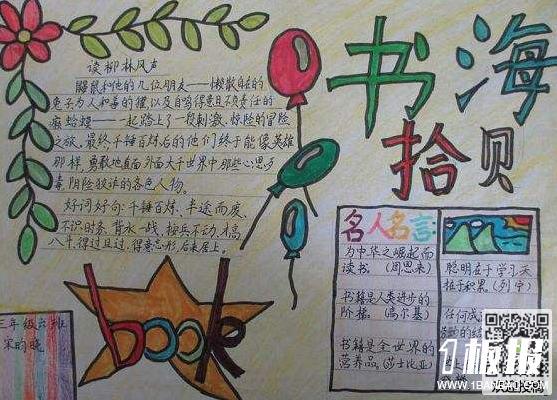 书海
拾贝
读柳林风声
鼹鼠和他的几位朋友——懒散自在的
兔子为人和善的獾,以及自鸣得意且不负责任的
癞蛤蟆——一起踏上了一段刺激、惊险的冒险
之旅,最终千锤百炼后的他们终于能像英雄
那样,勇敢地直面外面大千世界中那些心思歹
毒、阴险狡诈的各色人物。
好词好句:千锤百炼、半途而废、
不识时务、背水一战、按兵不动、才高
八斗、得过且过、得意忘形、后来居上。
book
三年级六班
宋昀晓
名人名言:
为中华之崛起而
读书。(周恩来)
书籍是人类进步的
阶梯。(高尔基)
书籍是全世界的
营养品。(莎士比亚)
聪明在于学习,天
才在于积累。(列宁)
任何成
1板报
WWW.1BANBAO.COM